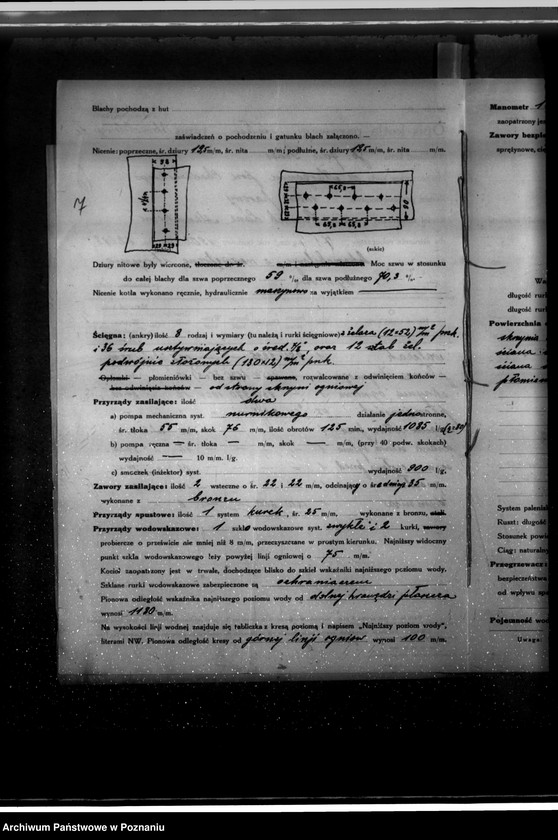 Blachy pochodzą z hut
zaświadczeń o pochodzeniu i gatunku blach załączono. —
Nicenie: poprzeczne, śr. dziury 125 m/m, śr. nita m/m; podłużne, śr. dziury 125 m/m, śr. nita m/m.
7
(szkic)
Dziury nitowe były wiercone, tłoczone do śr. m/m i Moc szwu w stosunku
do całej blachy dla szwa poprzecznego 59 % dla szwa podłużnego 70,3 %.
Nicenie kotła wykonano ręcznie, hydraulicznie maszynowo za wyjątkiem
Ścięgna: (ankry) ilość 8 rodzaj i wymiary (tu należą i rurki ścięgniowe) z żelaza (12×52)
i 36 śrub o śred. oraz 12 stab żel.
podwójnie (130×12)
Ogłomki — płomieniówki — bez szwu — spawane, rozwalcowane z odwinięciem końców —
bez odwinięcia końców — od strony skrzyni ogniowej
Przyrządy zasilające: ilość dwa
a) pompa mechaniczna syst. nurnikowego działanie jednostronne,
śr. tłoka 55 m/m, skok 76 m/m, ilość obrotów 125 min., wydajność 1085 l/g
b) pompa ręczna — śr. tłoka — m/m, skok — m/m, (przy 40 podw. skokach)
wydajność — 10 min. l/g.
c) smoczek (inżektor) syst. wydajność 900 l/g.
Zawory zasilające: ilość 2 wsteczne o śr. 22 i 22 m/m, odcinający o średnicy 35 m/m.
wykonane z bronzu
Przyrządy spustowe: ilość 1 system kurek, śr. 25 m/m, wykonane z bronzu, stali.
Przyrządy wodowskazowe: 1 szkło wodowskazowe syst. zwykłe i 2 kurki, zawory
probiercze o prześwicie nie mniej niż 8 m/m, przeczyszczane w prostym kierunku. Najniższy widoczny
punkt szkła wodowskazowego leży powyżej linji ogniowej o 75 m/m.
Kocioł zaopatrzony jest w trwałe, dochodzące blisko do szkieł wskaźniki najniższego poziomu wody.
Szklane rurki wodowskazowe zabezpieczone są ochraniaczem
Pionowa odległość wskaźnika najniższego poziomu wody od dolnej krawędzi płaszcza
wynosi 1180 m/m.
Na wysokości linji wodnej znajduje się tabliczka z kresą poziomą i napisem „Najniższy poziom wody”,
literami NW. Pionowa odległość kresy od górnej linji ogniow wynosi 100 m/m.
Manometr 1
zaopatrzony je
Zawory bezpie
sprężynowe, cię
Wa
długość rurl
długość rurl
Powierzchnia
skrzynia
ściana
ściana
płomie
System palenis
Ruszt: długość
Stosunek pow
Ciąg: naturaln
Przegrzewacz:
bezpieczeństwa
od wpływu spa
Pojemność wod
Uwaga:
Archiwum Państwowe w Poznaniu